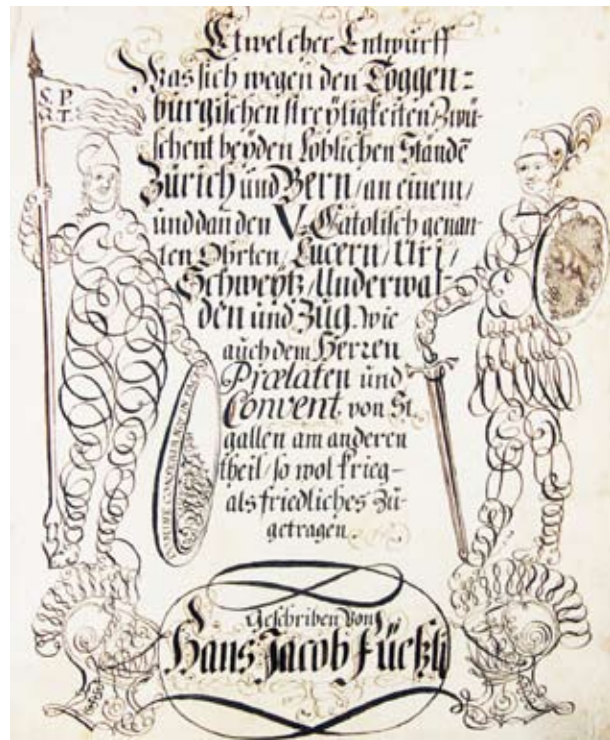 Etwelcher Entwurff
Was sich wegen den Toggen=
burgischen streytigkeiten/Zwü-
schent beyden Loblichen Stände
Zürich und Bern/an einem/
und dan den V. Catolisch genan-
ten Ohrten/Lucern/Uri/
Schweytz/Underwal-
den und Zug. Wie
auch dem Herren
Prælaten und
Convent von St.
gallen am anderen
theil/so wol krieg-
als friedliches Zu-
getragen.
S. P.
Q. T.
Geschriben Von
Hans Jacob Füeßli